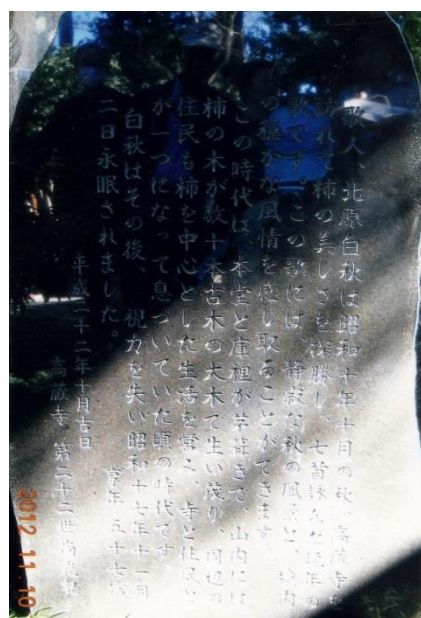 歌人、北原白秋は昭和十年十月の秋、高蔵寺を
訪れて柿の美しさを探勝し、七首詠んだ
歌です。この歌には、静寂な秋の風景と、境内
の穏かな風情を感じ取ることができます。
この時代は、本堂と庫裡が茅葺きで、山内には
柿の木が数十本古木の大木で生い茂り、周辺の
住民も柿を中心とした生活を営み、寺と住民と
が一つになって息づいていた頃の時代です
白秋はその後、視力を失い昭和十七年十一月
二日永眠されました。
享年 五十七歳
平成二十二年十月吉日
高蔵寺 第二十二世
2012 11 10